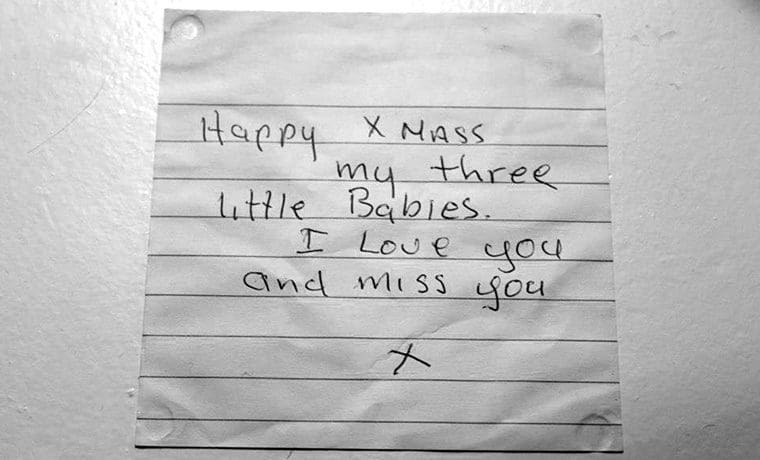 Happy X MASS
my three
little Babies.
I Love you
and miss you
X